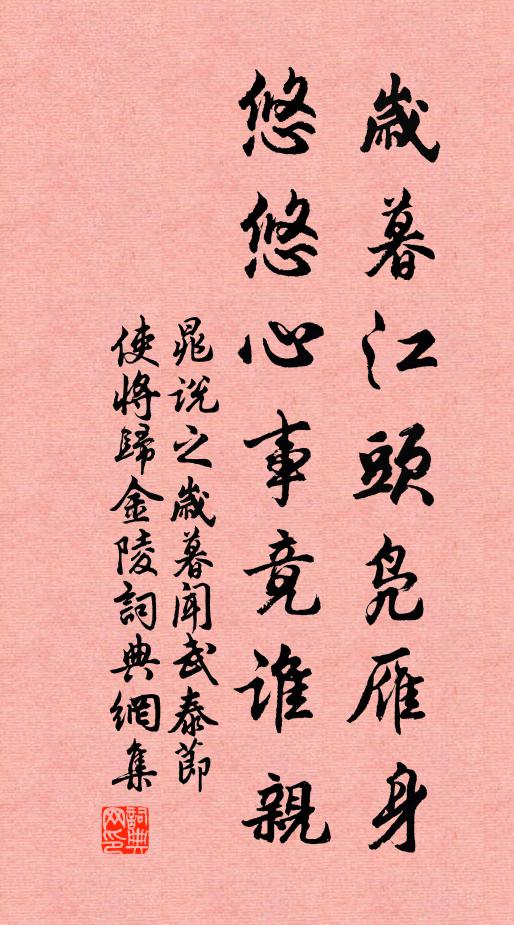 歲暮江頭鳧雁身
悠悠心事竟誰親
晁説之歲暮聞武泰節
使將歸金陵詞典網集
詞典
网印